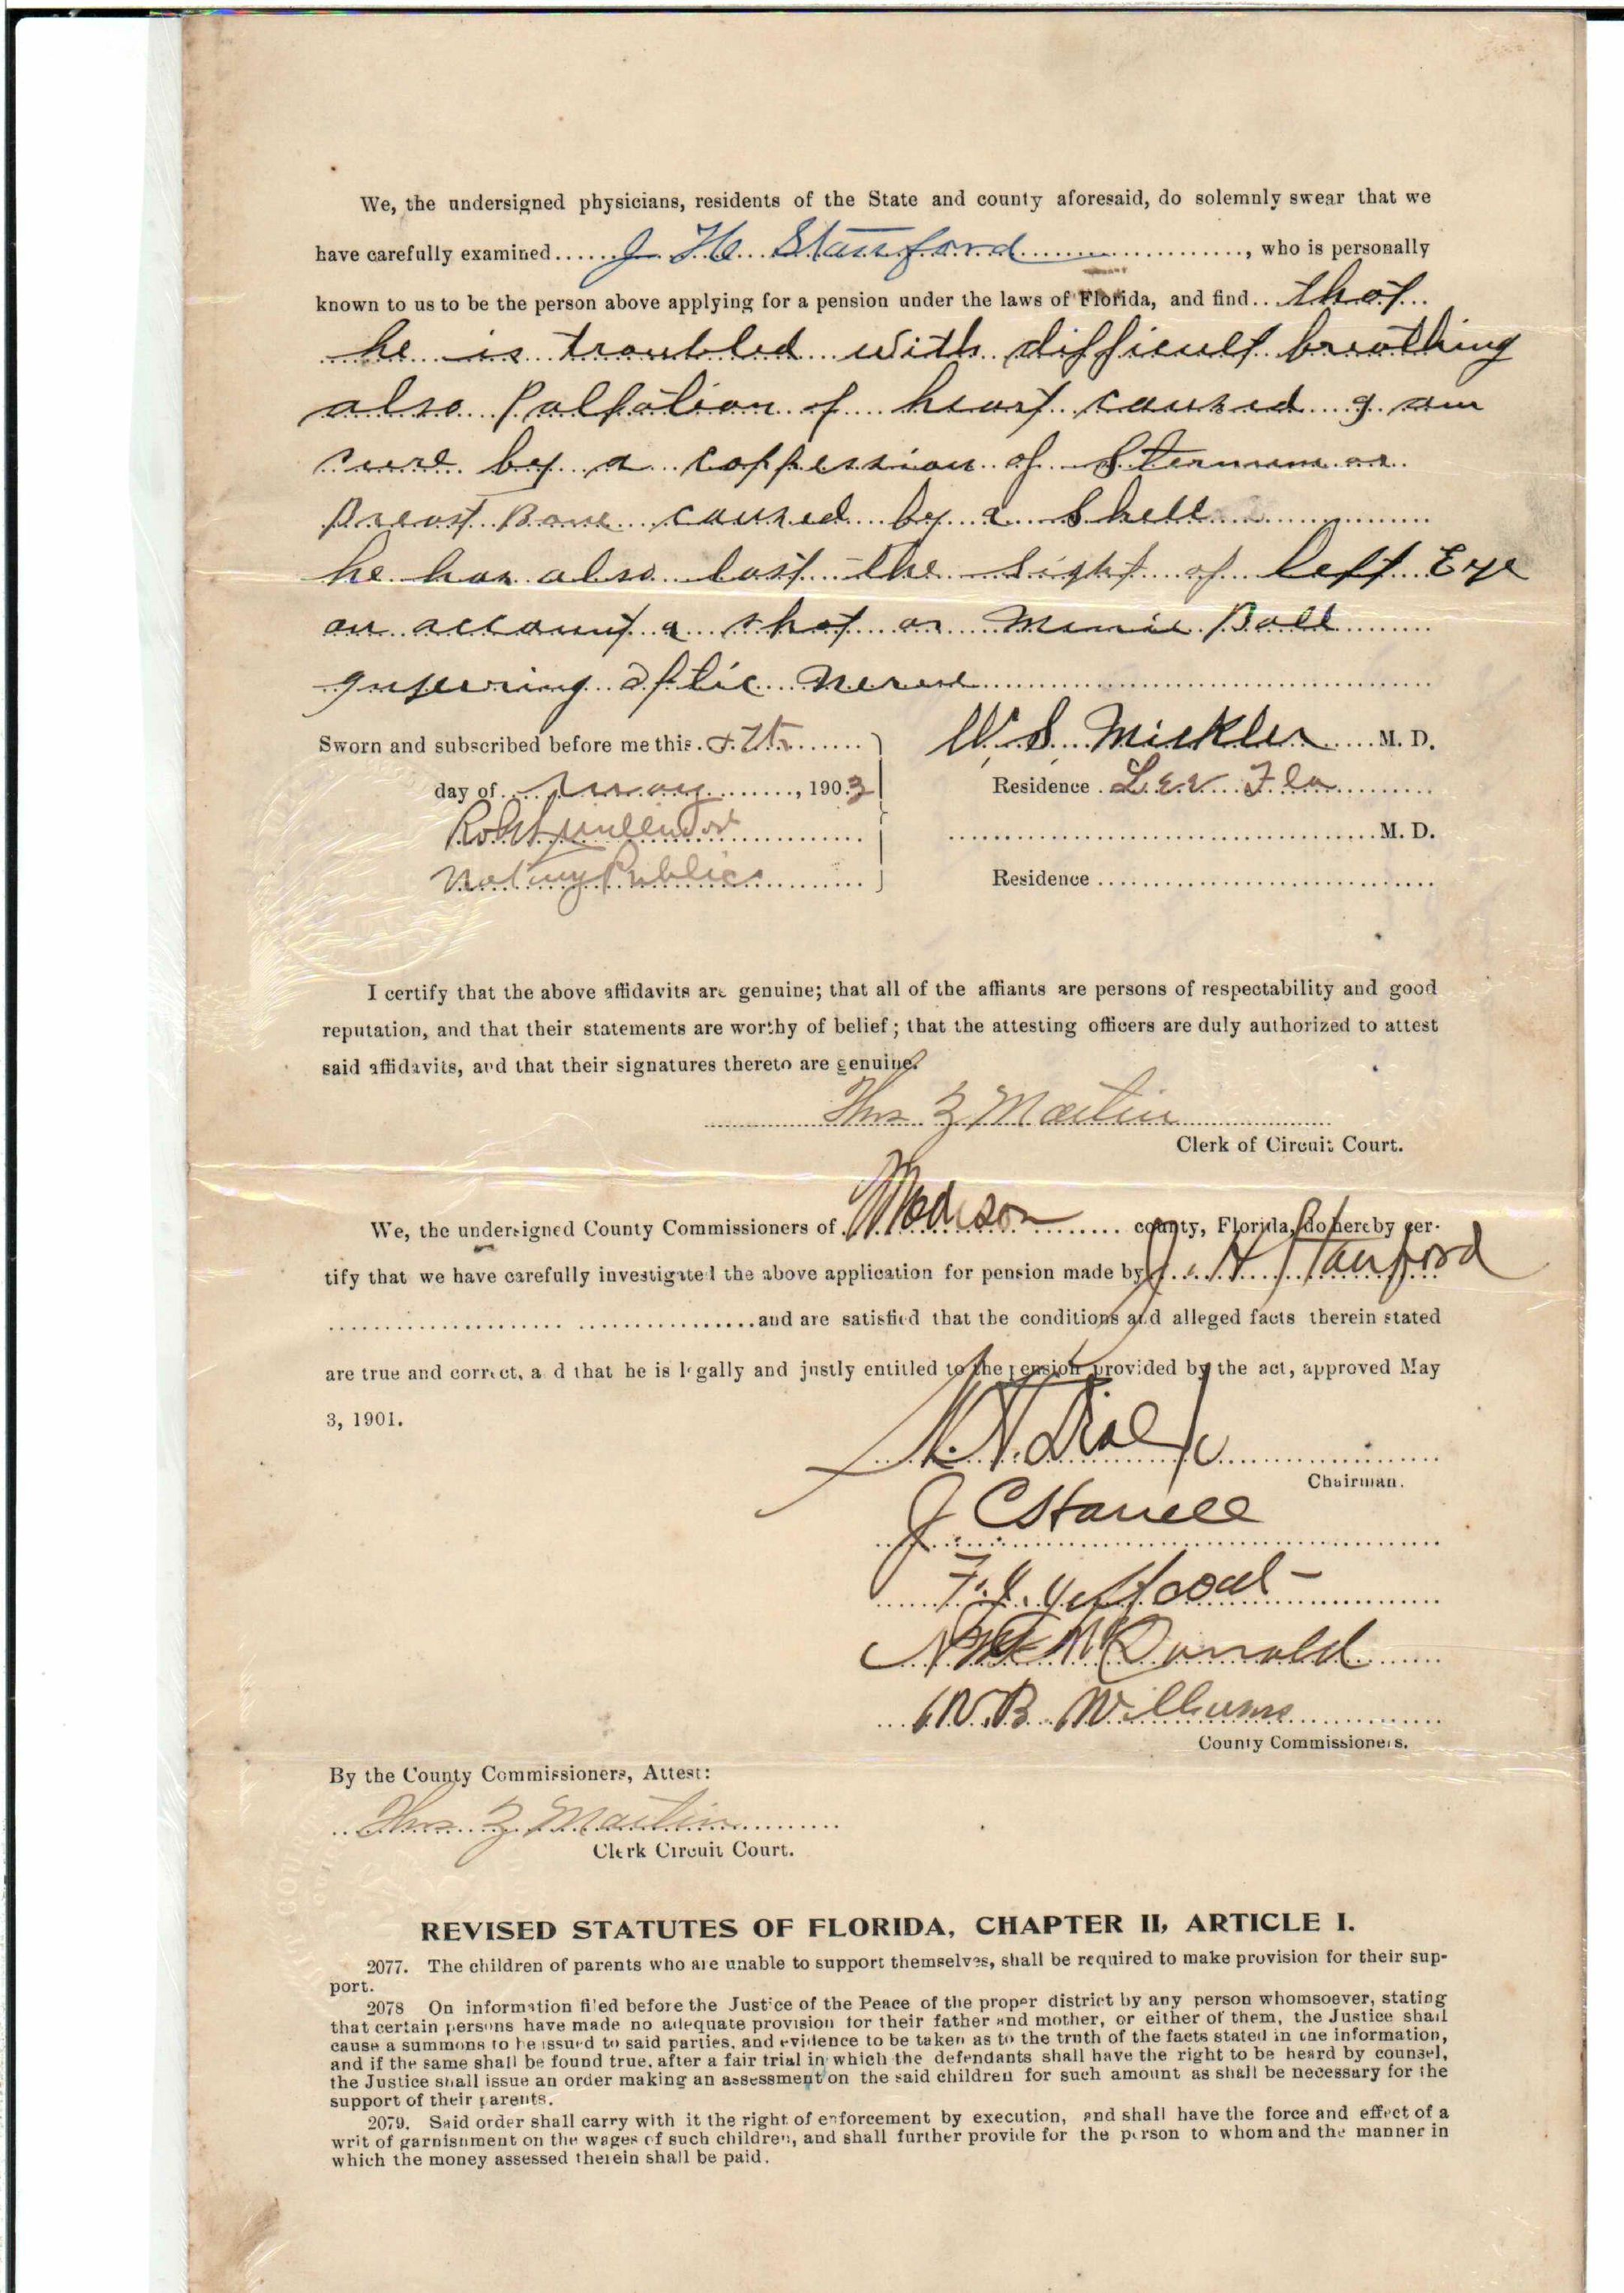 We, the undersigned physicians, residents of the State and county aforesaid, do solemnly swear that we
have carefully examined......J. H. Stanford......................, who is personally
known to us to be the person above applying for a pension under the laws of Florida, and find.. that
he is troubled with difficult breathing
also Palpation of heart caused I am
sure by a coppession of Sternum or
Breast Bone caused by a Shell
he has also lost the sight of left Eye
on account a shot or Minie Ball
optic nerve
Sworn and subscribed before me this
day of May, 1903
Notary Public
W. S. Mickler M. D.
Residence Lee Fla
M. D.
Residence
I certify that the above affidavits are genuine; that all of the affiants are persons of respectability and good
reputation, and that their statements are worthy of belief; that the attesting officers are duly authorized to attest
said affidavits, and that their signatures thereto are genuine.
Thos Z Martin
Clerk of Circuit Court.
We, the undersigned County Commissioners of Madison county, Florida, do hereby cer-
tify that we have carefully investigated the above application for pension made by J. H. Stanford
and are satisfied that the conditions and alleged facts therein stated
are true and correct, and that he is legally and justly entitled to the pension provided by the act, approved May
3, 1901.
Chairman.
J C Harrell
McDonald
W. B. Williams
County Commissioners.
By the County Commissioners, Attest:
Thos Z Martin
Clerk Circuit Court.
REVISED STATUTES OF FLORIDA, CHAPTER II, ARTICLE I.
2077. The children of parents who are unable to support themselves, shall be required to make provision for their sup-
port.
2078 On information filed before the Justice of the Peace of the proper district by any person whomsoever, stating
that certain persons have made no adequate provision for their father and mother, or either of them, the Justice shall
cause a summons to be issued to said parties, and evidence to be taken as to the truth of the facts stated in the information,
and if the same shall be found true, after a fair trial in which the defendants shall have the right to be heard by counsel,
the Justice shall issue an order making an assessment on the said children for such amount as shall be necessary for the
support of their parents.
2079. Said order shall carry with it the right of enforcement by execution, and shall have the force and effect of a
writ of garnishment on the wages of such children, and shall further provide for the person to whom and the manner in
which the money assessed therein shall be paid.